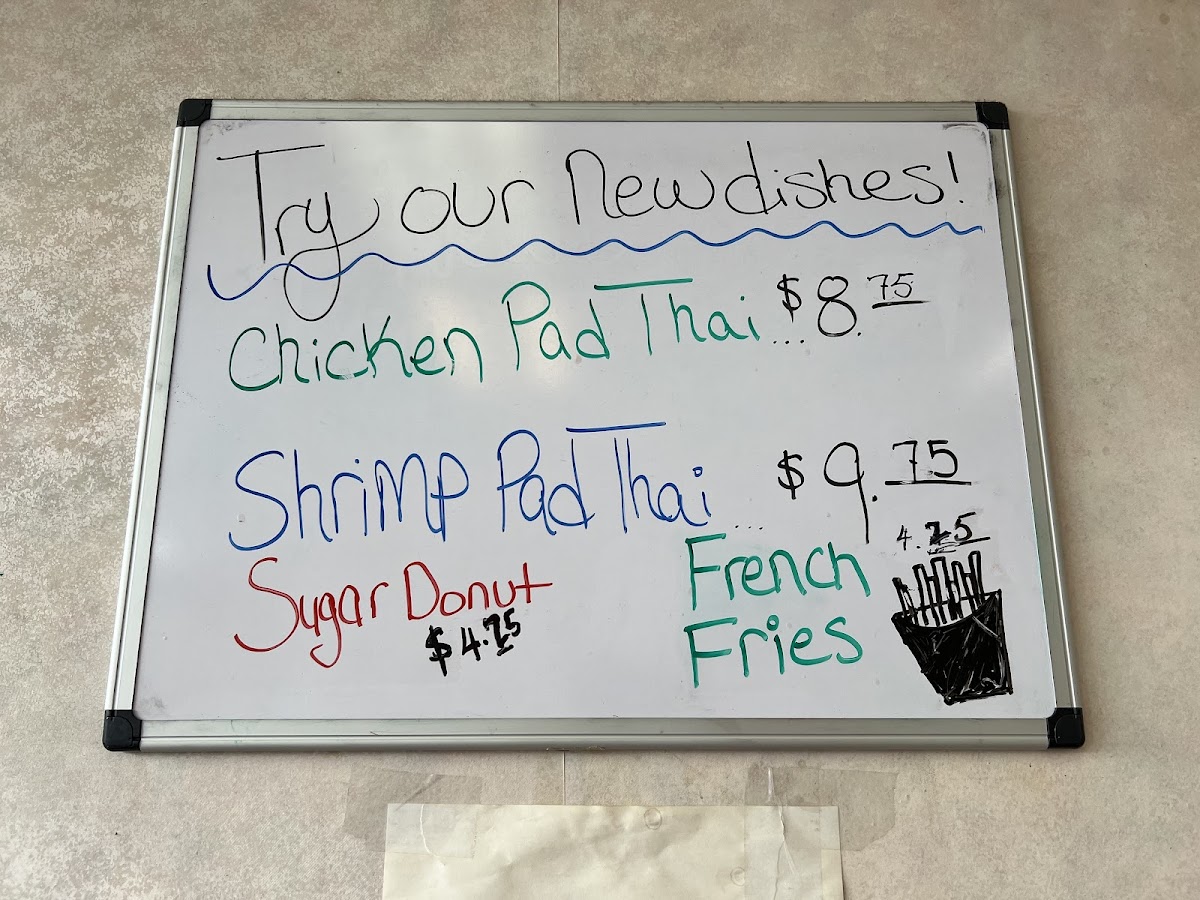 Try our New dishes!
Chicken Pad Thai ... $8.75
Shrimp Pad Thai ... $9.75
Sugar Donut
$4.25
4.25
French
Fries